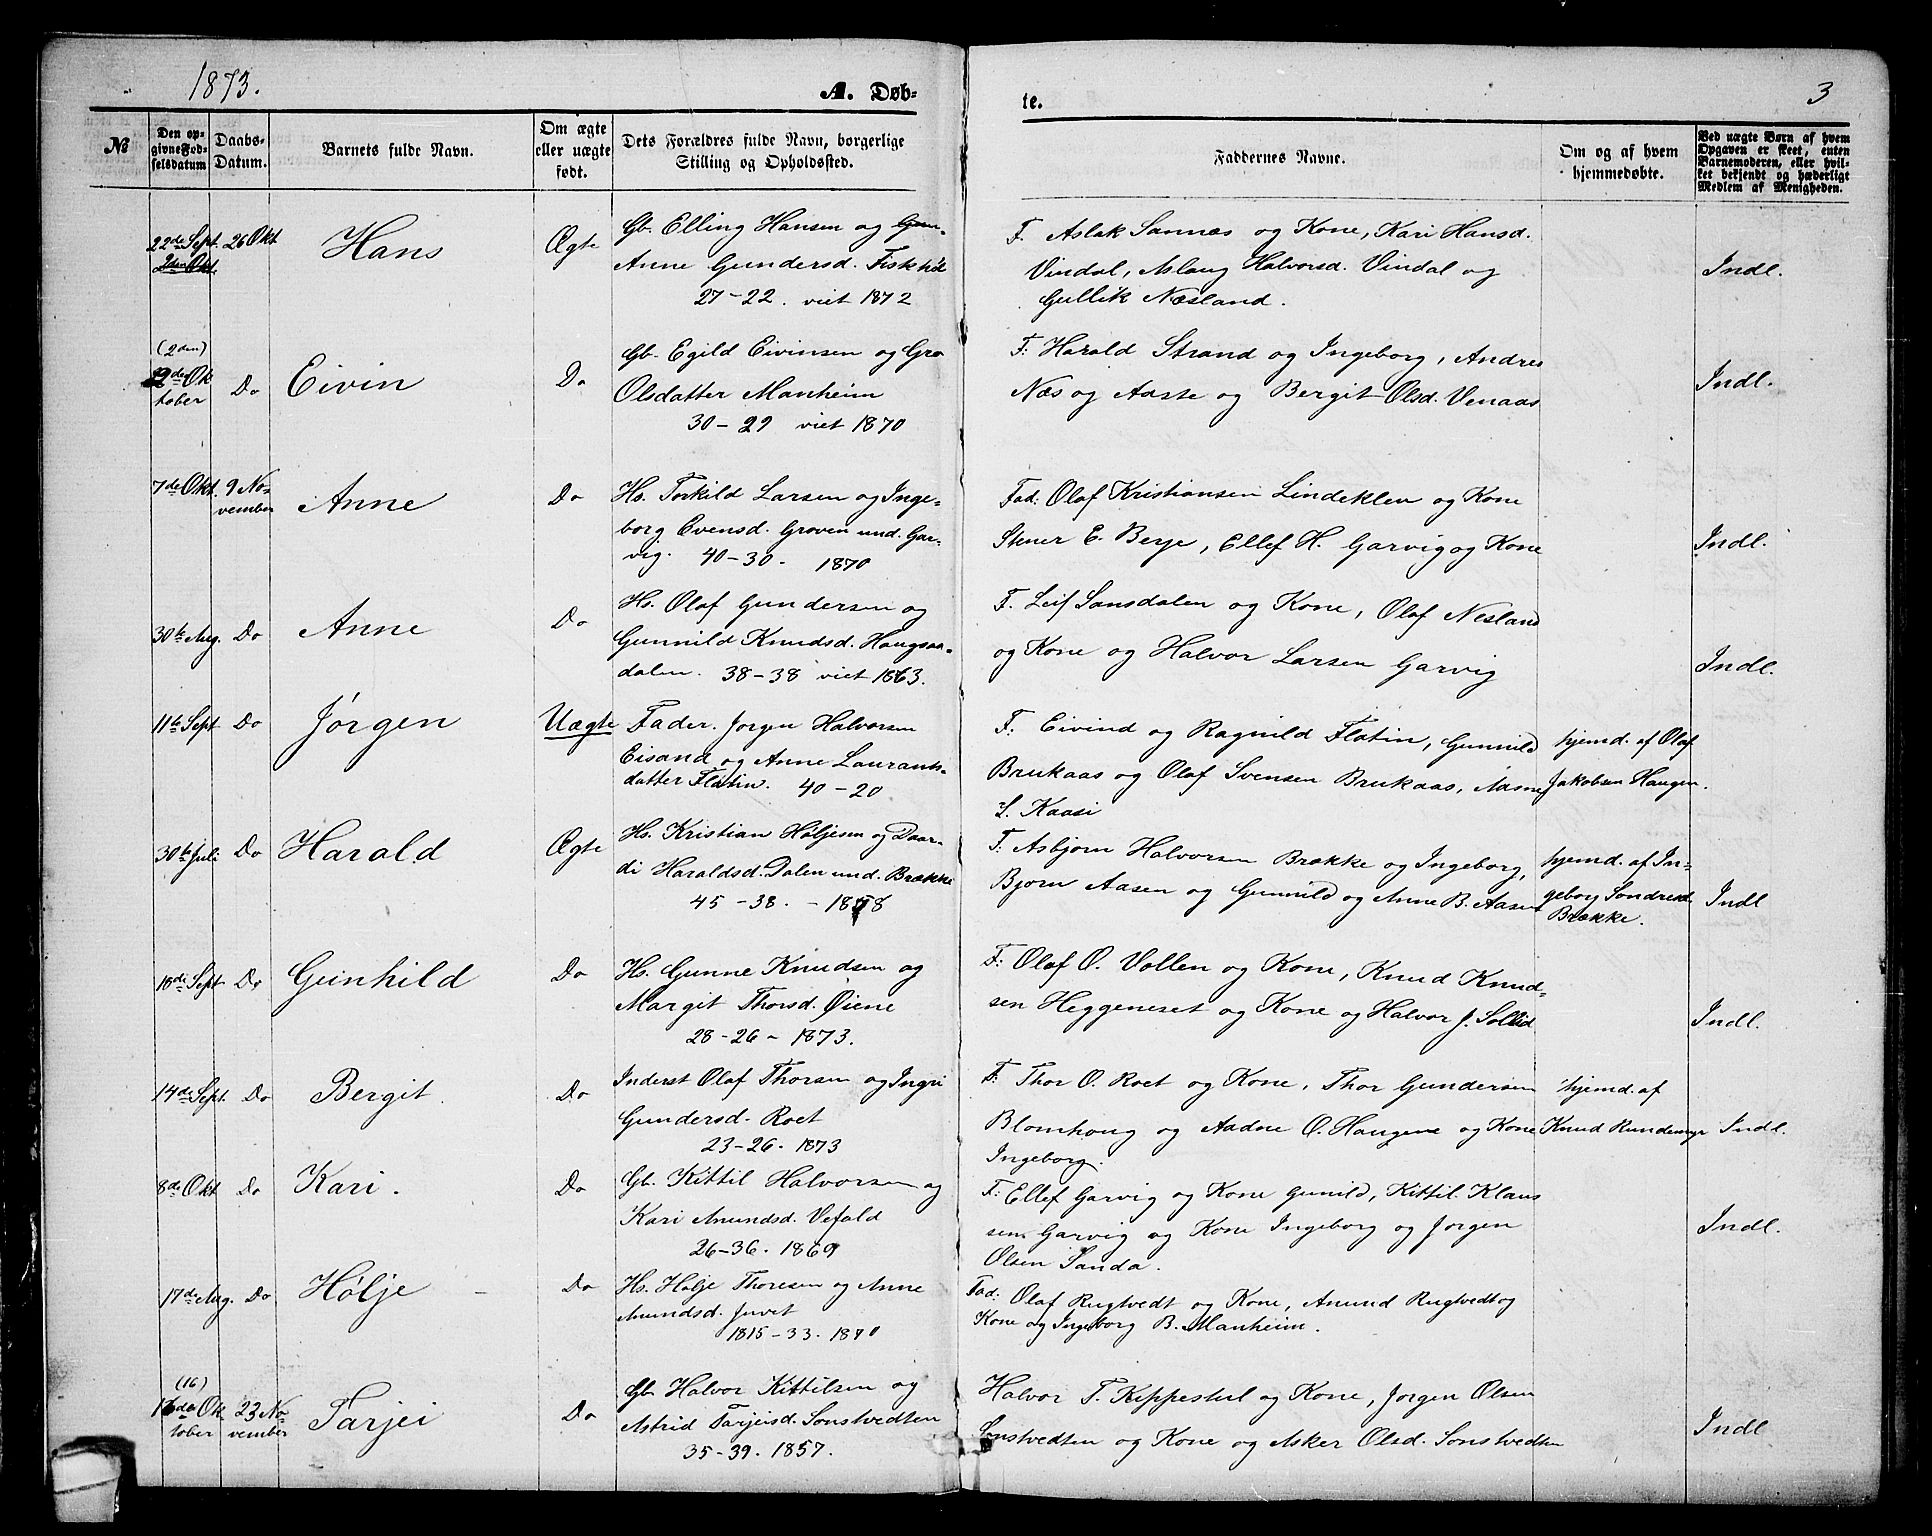 1873.
A. Døb-
te.
3
No
Den op-
givne Fød-
selsdatum
Daabs-
Datum.
Barnets fulde Navn.
Om ægte
eller uægte
født.
Dets Forældres fulde Navn, borgerlige
Stilling og Opholdssted.
Faddernes Navne.
Om og af hvem
hjemmedøbte.
Ved uægte Børn af hvem
Opgaven er skeet, enten
Barnemoderen, eller hvil-
ket bekjendt og hæderligt
Medlem af Menigheden.
22de Sept.
2den Okt.
26 Okt
Hans
Ægte
Gb. Elling Hansen og Gun-
Anne Gundersd.
27-22. viet 1872
F. Aslak Sannæs og Kone, Kari Hansd.
Vindal, Aslaug Halvorsd. Vindal og
Gullik Næsland.
Indl.
(2den)
2den Ok
tober
Do
Eivin
Do
Gb. Egild Eivinsen og Gro
Olsdatter Manheim
30-29 viet 1870
F. Harald Strand og Ingeborg, Andres
Næs og Aaste og Bergit Olsd. Venaas
Indl.
7de Okt.
9 No-
vember
Anne
Do
Hs. Torkild Larsen og Inge-
borg Evensd. Groven und. Gar-
vig. 40-30. 1870
Fad: Olaf Kristiansen Lindeklev og Kone
Stener E. Berge, Ellef H. Garvig og Kone
Indl.
30te Aug.
Do
Anne
Do
Hs. Olaf Gundersen og
Gunnild Knudsd. Haugsaa-
dalen. 38-38 viet 1863.
F. Leif Sansdalen og Kone, Olaf Nesland
og Kone og Halvor Larsen Garvig
Indl.
11te Sept
Do
Jørgen
Uægte
Fader. Jørgen Halvorsen
Eisand og Anne Laurants-
datter Flatin. 40-20
F. Eivind og Ragnild Flatin, Gunnild
Brukaas og Olaf Svensen Brukaas, Aasne
L. Kaasi
hjemd. af Olaf
Jakobsen Haugen.
30te Juli
Do
Harald
Ægte
Hs. Kristian Høljesen og Daar-
di Haraldsd. Dalen und. Brække
45-38. - 1858
F. Asbjørn Halvorsen Brække og Ingeborg,
Bjørn Aasen og Gunnild og Anne B. Aasen
hjemd. af In-
geborg Sondresd.
Brække.
Indl
18de Sept
Do
Gunhild
Do
Hs. Gunne Knudsen og
Margit Thorsd. Øiene
28-26 - 1873.
F. Olaf O. Vollen og Kone, Knud Knud-
sen Heggeneset og Kone og Halvor J. Sollid
Indl.
14de Sept.
Do
Bergit.
Do
Inderst Olaf Thorsen og Ingri
Gundersd. Roet
23-26. 1873
F. Thor O. Roet og Kone, Thor Gundersen
Blomhoug og Aadne O. Haugene og Kone
Ingeborg.
hjemd. af
Knud Rundemyr
Indl.
8de Okt
Do
Kari.
Do
Gb. Kittil Halvorsen og
Kari Anundsd. Vefald
26-36. 1869
F. Ellef Garvig og Kone Gunild, Kittil Klaus
sen Garvig og Kone Ingeborg og Jørgen
Olsen Sanda.
Indl.
17de Aug.
Do
Høljе
Do
Hs. Hølje Thoresen og Anne
Anundsd. Juvet
1815-33. 1870
Fad: Olaf Rugtvedt og Kone, Anund Rugtvedt og
Kone og Ingeborg B. Manheim.
(16)
16de Ok
tober
23 No-
vember
Tarjei
Do
Gb. Halvor Kittilsen og
Astrid Tarjeisd. Sonstvedten
35-39. 1857.
Halvor T. Kippestul og Kone, Jørgen Olsen
Sonstvedten og Kone og Asker Olsd. Sonstvedten
Indl